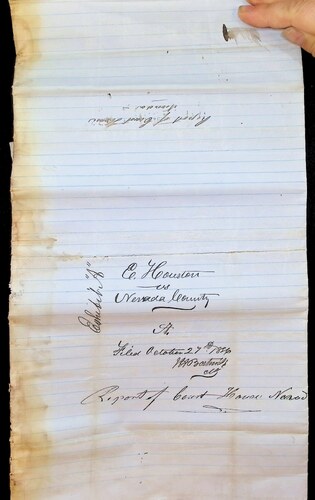 Report of Court House
Exhibit "A"
E. Houston
vs
Nevada County
A
Filed October 27th
Report of Court House Nevad